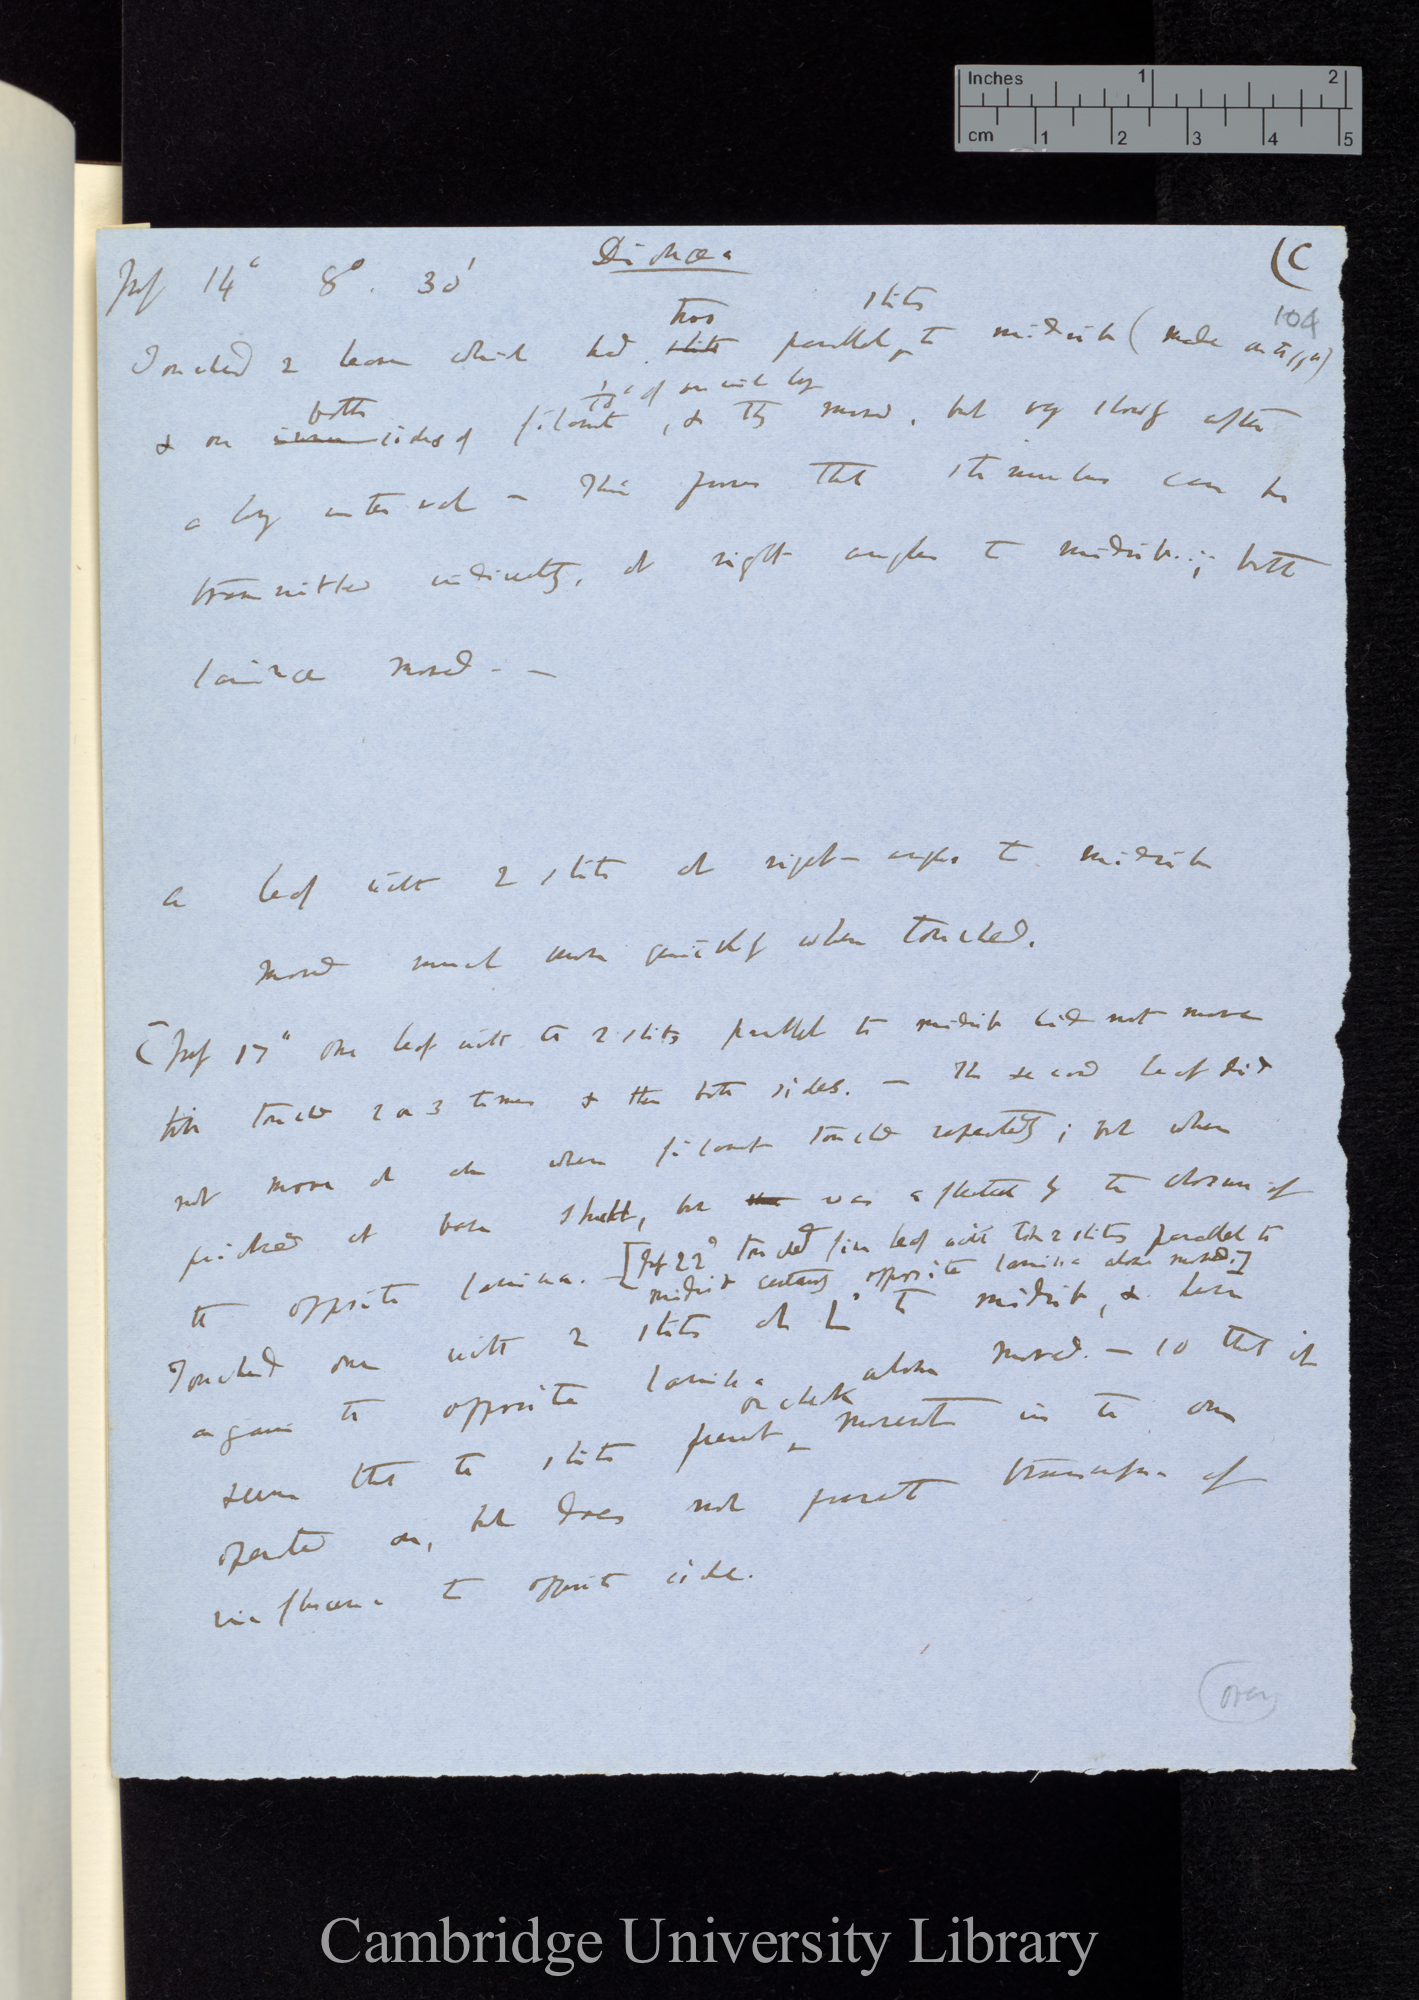 Inches 1 2
cm 1 2 3 4 5
Dionæa
(C
14° 8°. 30'
104
two slits
Touched 2 leaves which had slits parallel to midrib (made on
both 1/10 of an inch long
& on sides of filament, & they moved, but very slowly after
a long interval — This proves that stimulus can be
transmitted indirectly, at right angles to midrib.; both
laminæ moved. —
A leaf with 2 slits at right angles to midrib
moved much more quickly when touched.
[ 17th one leaf with the 2 slits parallel to midrib did not move
till touched 2 or 3 times & then both sides. — The second leaf did
not move at all when filament touched repeatedly; but when
pricked at base shut, but was affected by the closure of
the opposite lamina. —
[ 22d touched five leaf with the 2 slits parallel to
midrib certainly opposite lamina alone moved.]
Touched one with 2 slits at L° to midrib, & here
again the opposite lamina alone moved. — so that it
or check
seems that the slits prevent movement in the one
operated on, but does not prevent transmission of
influence to opposite side.
over
Cambridge University Library